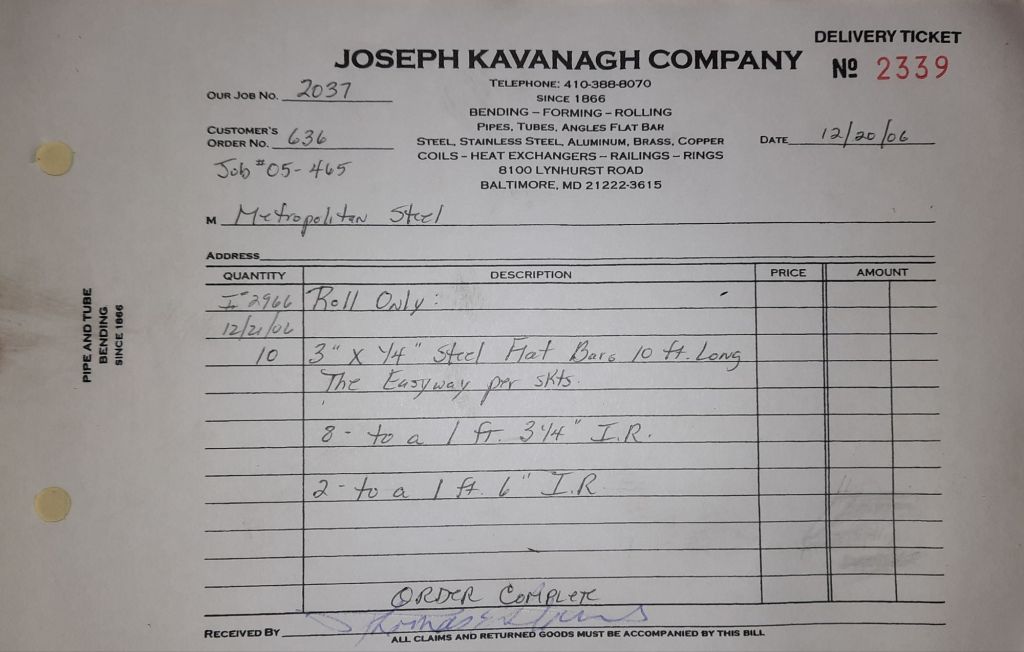 DELIVERY TICKET
JOSEPH KAVANAGH COMPANY
Nº 2339
TELEPHONE: 410-388-8070
OUR JOB NO. 2037
SINCE 1866
BENDING – FORMING – ROLLING
PIPES, TUBES, ANGLES FLAT BAR
CUSTOMER'S
ORDER NO. 636
STEEL, STAINLESS STEEL, ALUMINUM, BRASS, COPPER
DATE 12/20/06
COILS – HEAT EXCHANGERS – RAILINGS – RINGS
Job #05-465
8100 LYNHURST ROAD
BALTIMORE, MD 21222-3615
M Metropolitan Steel
ADDRESS
QUANTITY DESCRIPTION PRICE AMOUNT
I-2966 Roll Only:
12/21/06
10 3" X 1/4" Steel Flat Bars 10 ft. Long
The Easyway per skts.
8 - to a 1 ft. 3 1/4" I.R.
2 - to a 1 ft. 6" I.R.
ORDER COMPLETE
RECEIVED BY
ALL CLAIMS AND RETURNED GOODS MUST BE ACCOMPANIED BY THIS BILL
PIPE AND TUBE
BENDING
SINCE 1866